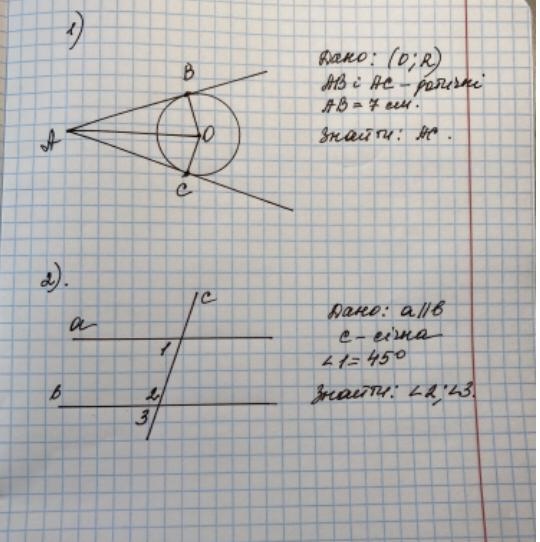 1)
B
A
O
C
Дано: (O; R)
AB і AC - дотичні
AB = 7 см.
Знайти: AC.
2).
c
a
1
в
2
3
Дано: a||в
c - січна
∠1 = 45°
Знайти: ∠2; ∠3.